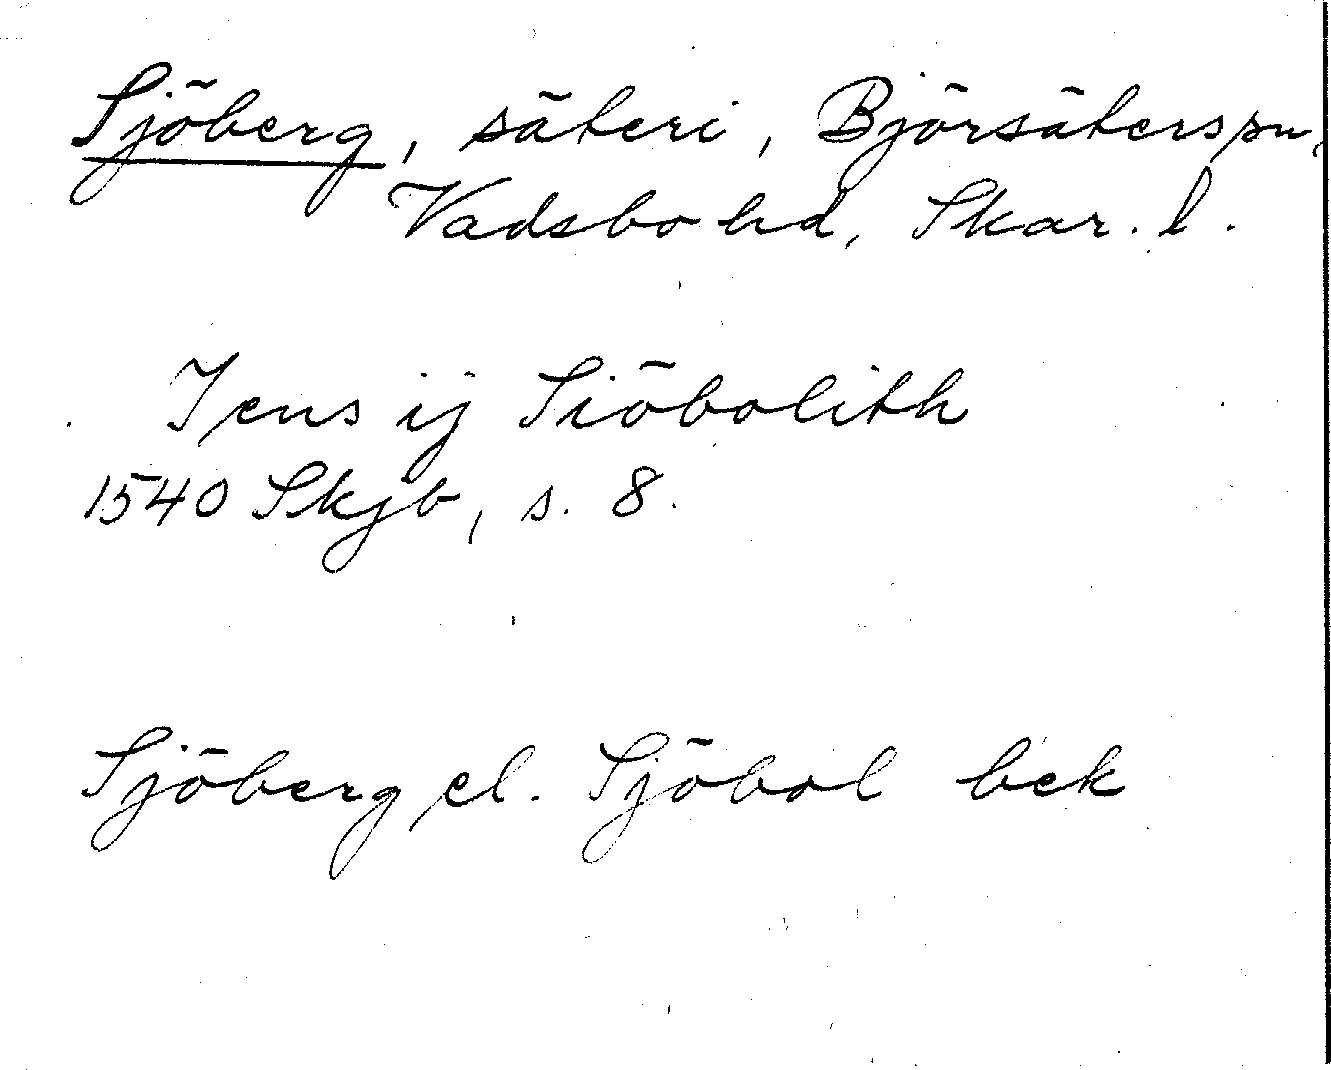 Sjöberg, säteri, Björsäters sn,
Vadsbo hd, Skar. l.
Jens ij Siöbolith
1540 Skjb, s. 8.
Sjöberg el. Sjöbol bek